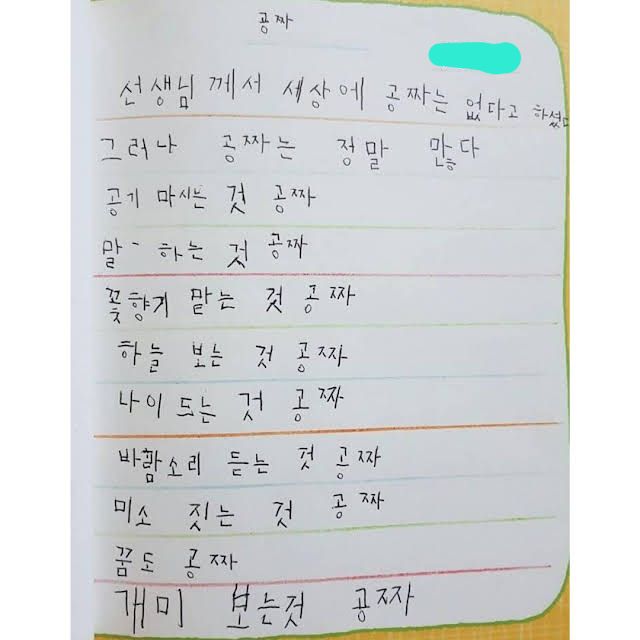 공짜
선생님 께서 세상에 공짜는 없다고 하셨다
그러나 공짜는 정말 많다
공기 마시는 것 공짜
말 하는 것 공짜
꽃향기 맡는 것 공짜
하늘 보는 것 공짜
나이 드는 것 공짜
바람소리 듣는 것 공짜
미소 짓는 것 공짜
꿈도 공짜
개미 보는것 공짜